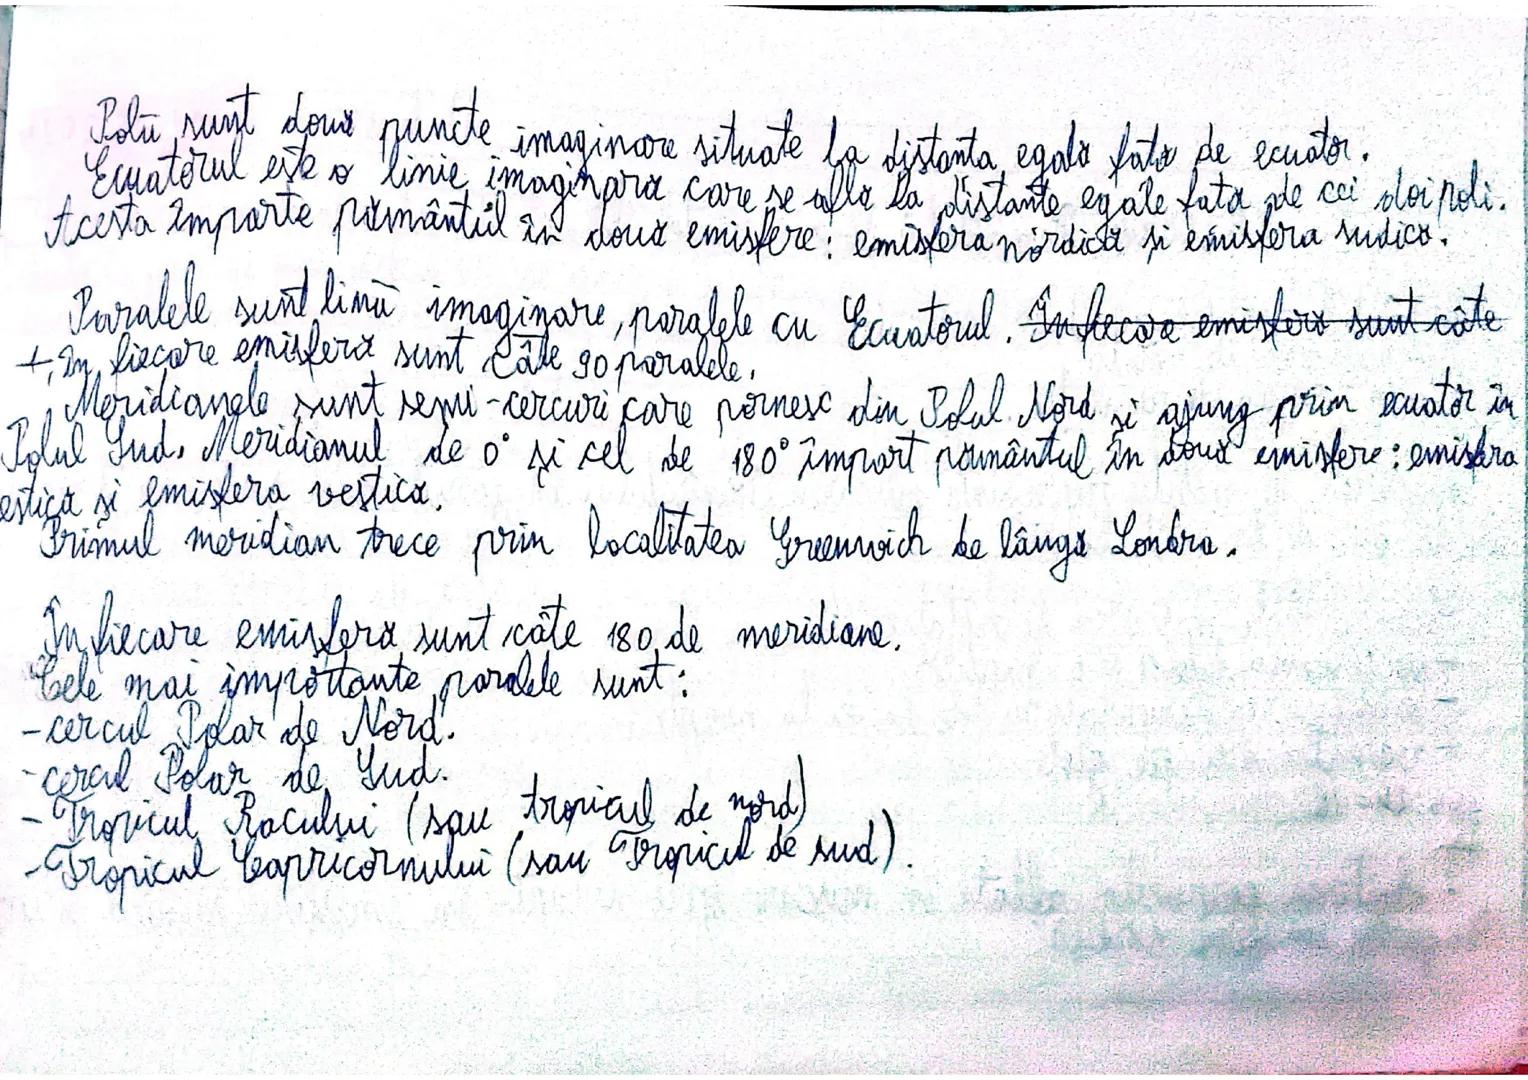 Polii sunt două puncte imaginare situate la distanta egală fată de ecuator.
Ecuatorul este o linie imaginară care se află la distante egale fată de cei doi poli.
Acesta împarte pământul în două emisfere: emisfera nordică si emisfera sudică.
Paralele sunt linii imaginare, paralele cu Ecuatorul. In fiecare emisferă sunt câte
+, În fiecare emisferă sunt câte 90 paralele.
Meridianele sunt semi-cercuri care pornesc din Polul Nord si ajung prin ecuator în
Polul Sud. Meridianul de 0° si cel de 180° împart pământul în două emisfere: emisfera
estică si emisfera vestică.
Primul meridian trece prin localitatea Greenwich de lângă Londra.
În fiecare emisferă sunt câte 180 de meridiane.
Cele mai importante paralele sunt:
-cercul Polar de Nord.
-cercul Polar de Sud.
-Tropicul Racului (sau tropicul de nord)
-Tropicul Capricornului (sau Tropicul de sud).